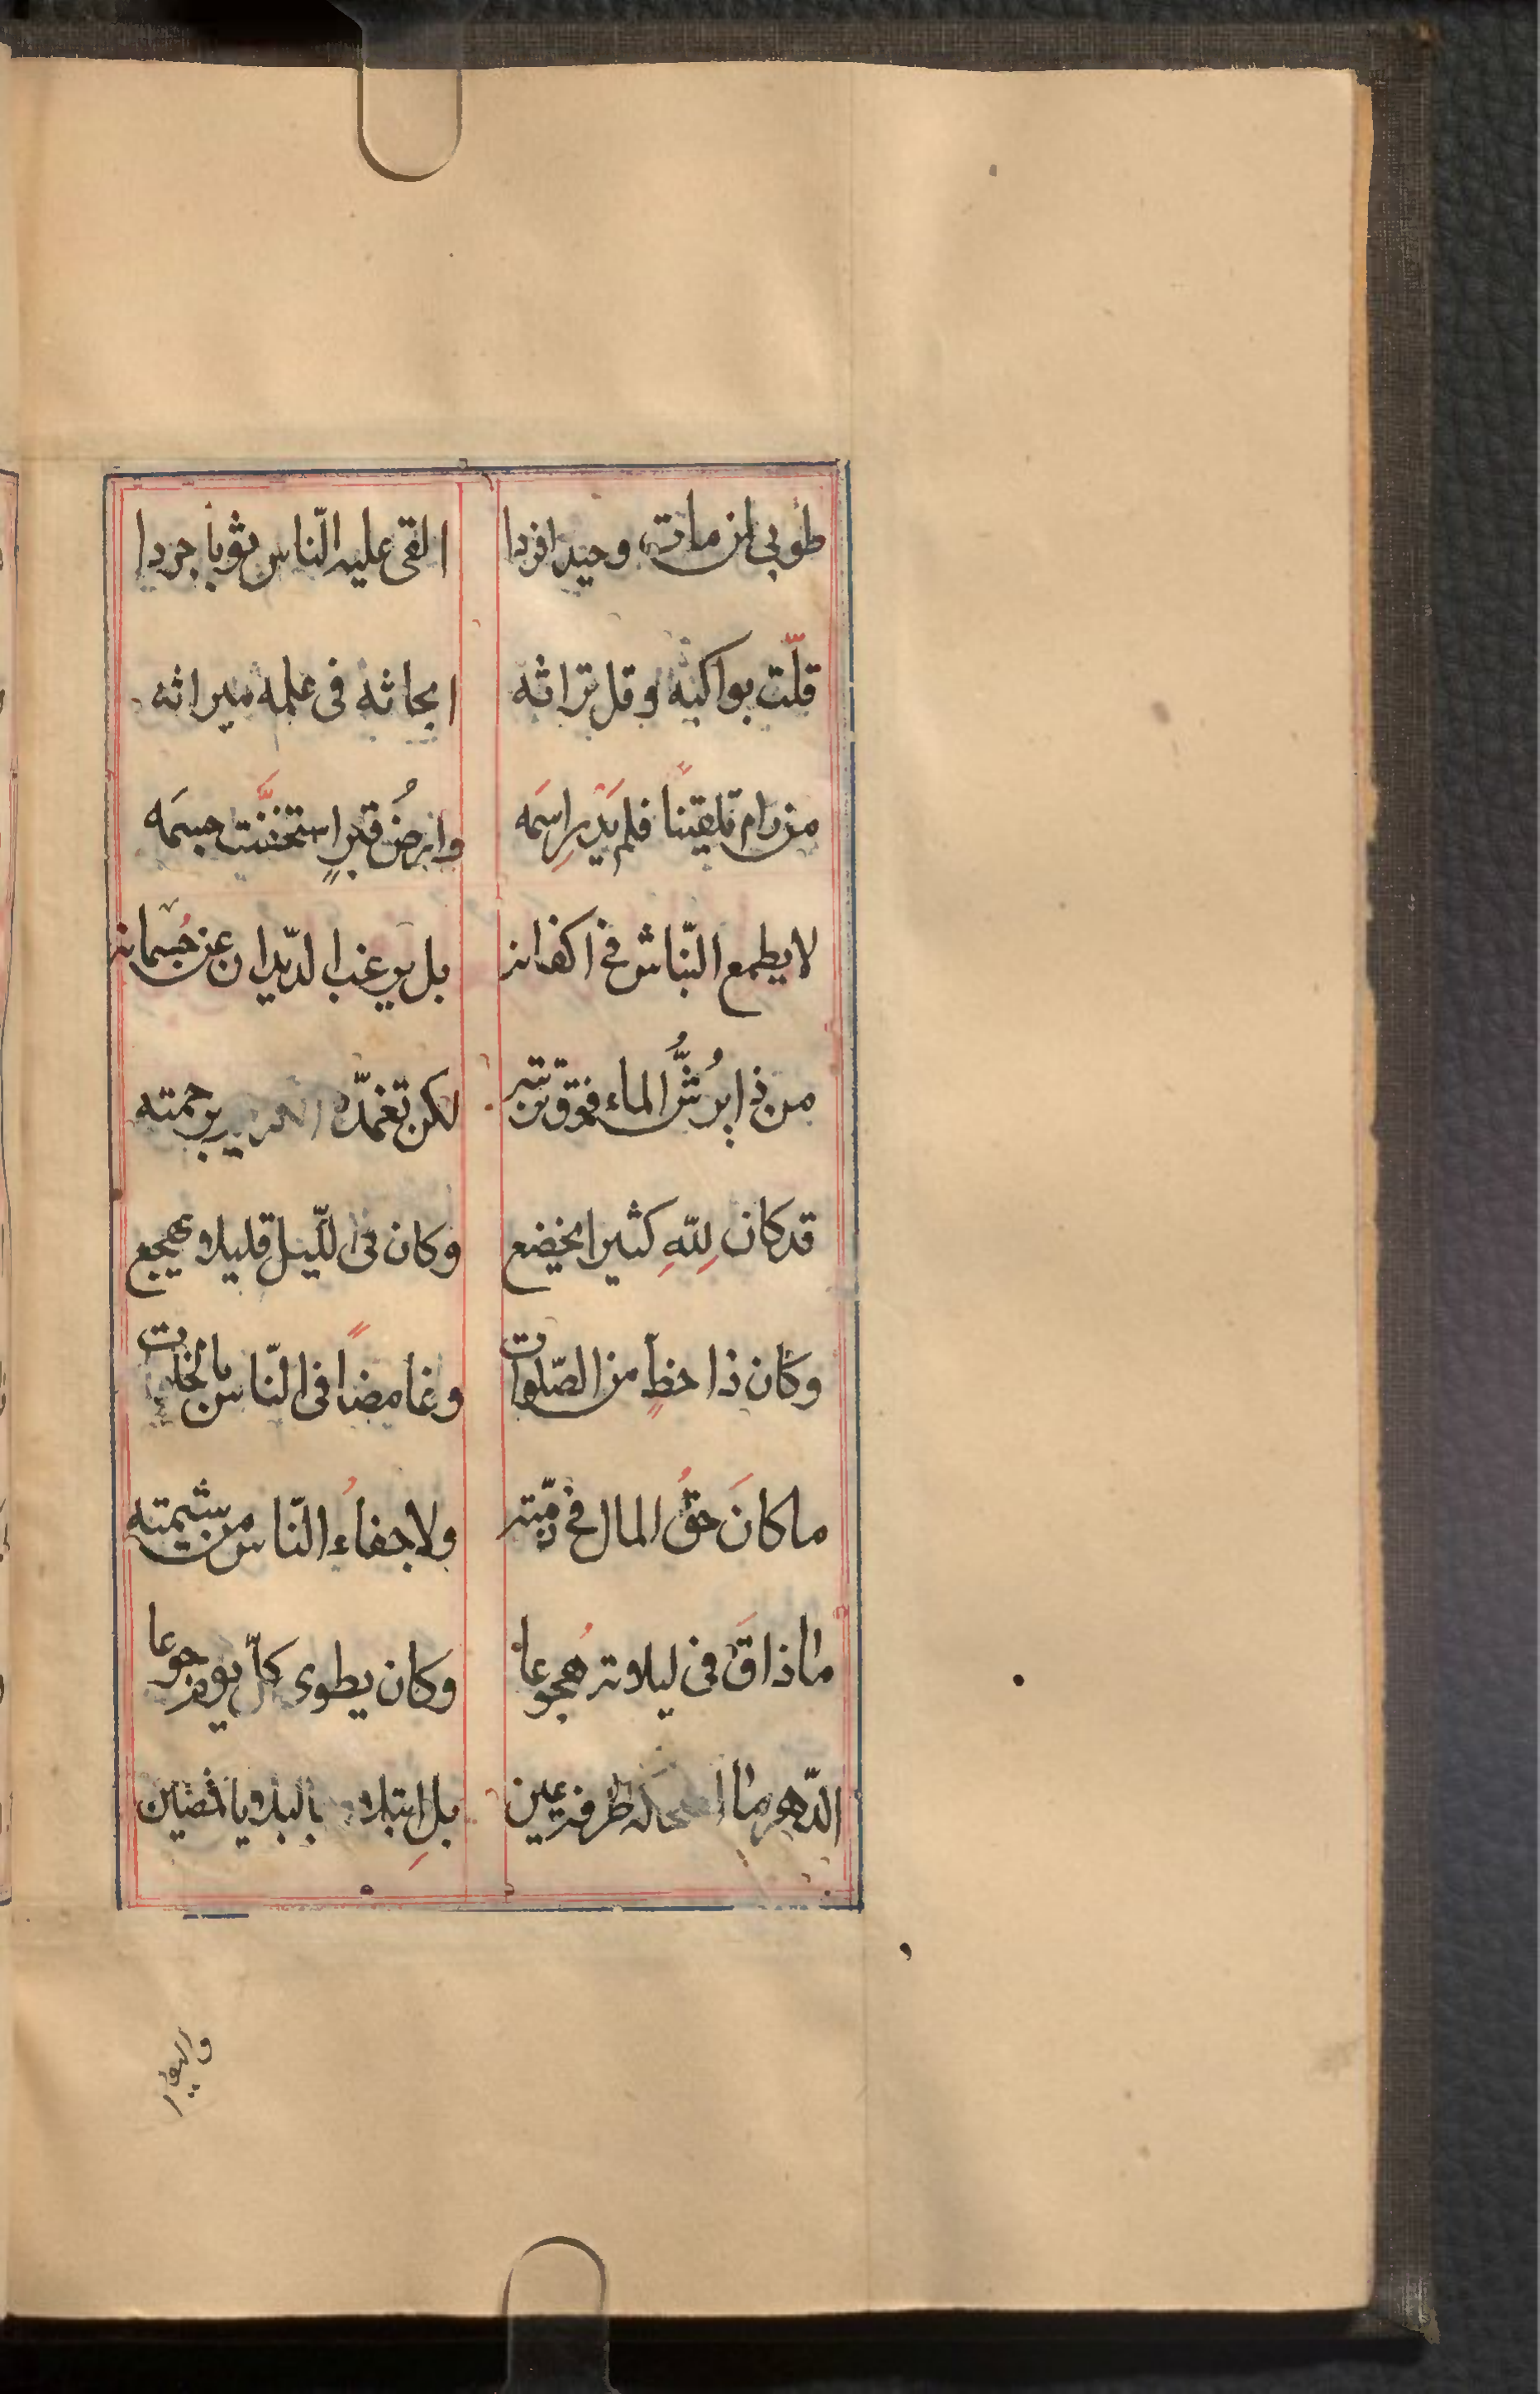 طوبى لمن مات وحيدا فردا القى عليه النّاس ثوبا جردا
قلّت بواكيه وقل تراثه ابحاثه فى علمه ميراثه
من رام تلقينا فلم يدر اسمَه وارضُ قبرٍ استخنّت جسمَه
لا يطمع النّباش فى اكفانه بل يرغب الدّيدان عن جُسمانه
من ذا يرُشُّ الماء فوق تربته لكن تغمّده برحمته
قد كان لِلّهِ كثيرا يخضع وكان فى اللّيل قليلا يهجع
وكان ذا حظٍ من الصّلوات وغامضاً فى النّاس بالخلوات
ما كانَ حقُّ المال فى ذمّته ولا جفاءُ النّاس من شيمته
ما ذاقَ فى ليلاته هُجوعا وكان يطوى كلّ يوم جوعا
الدّهر ما طرفة عين بلِ ابتلاه بالبلايا